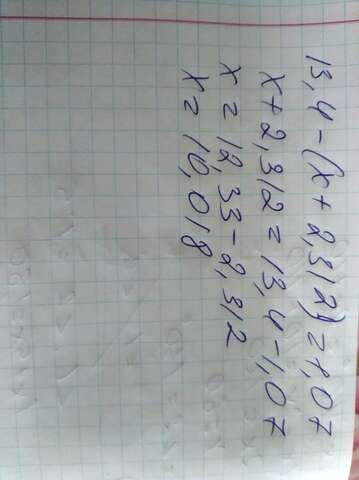 13,4-(x+2,312)=1,07
x+2,312=13,4-1,07
x=12,33-2,312
x=10,018